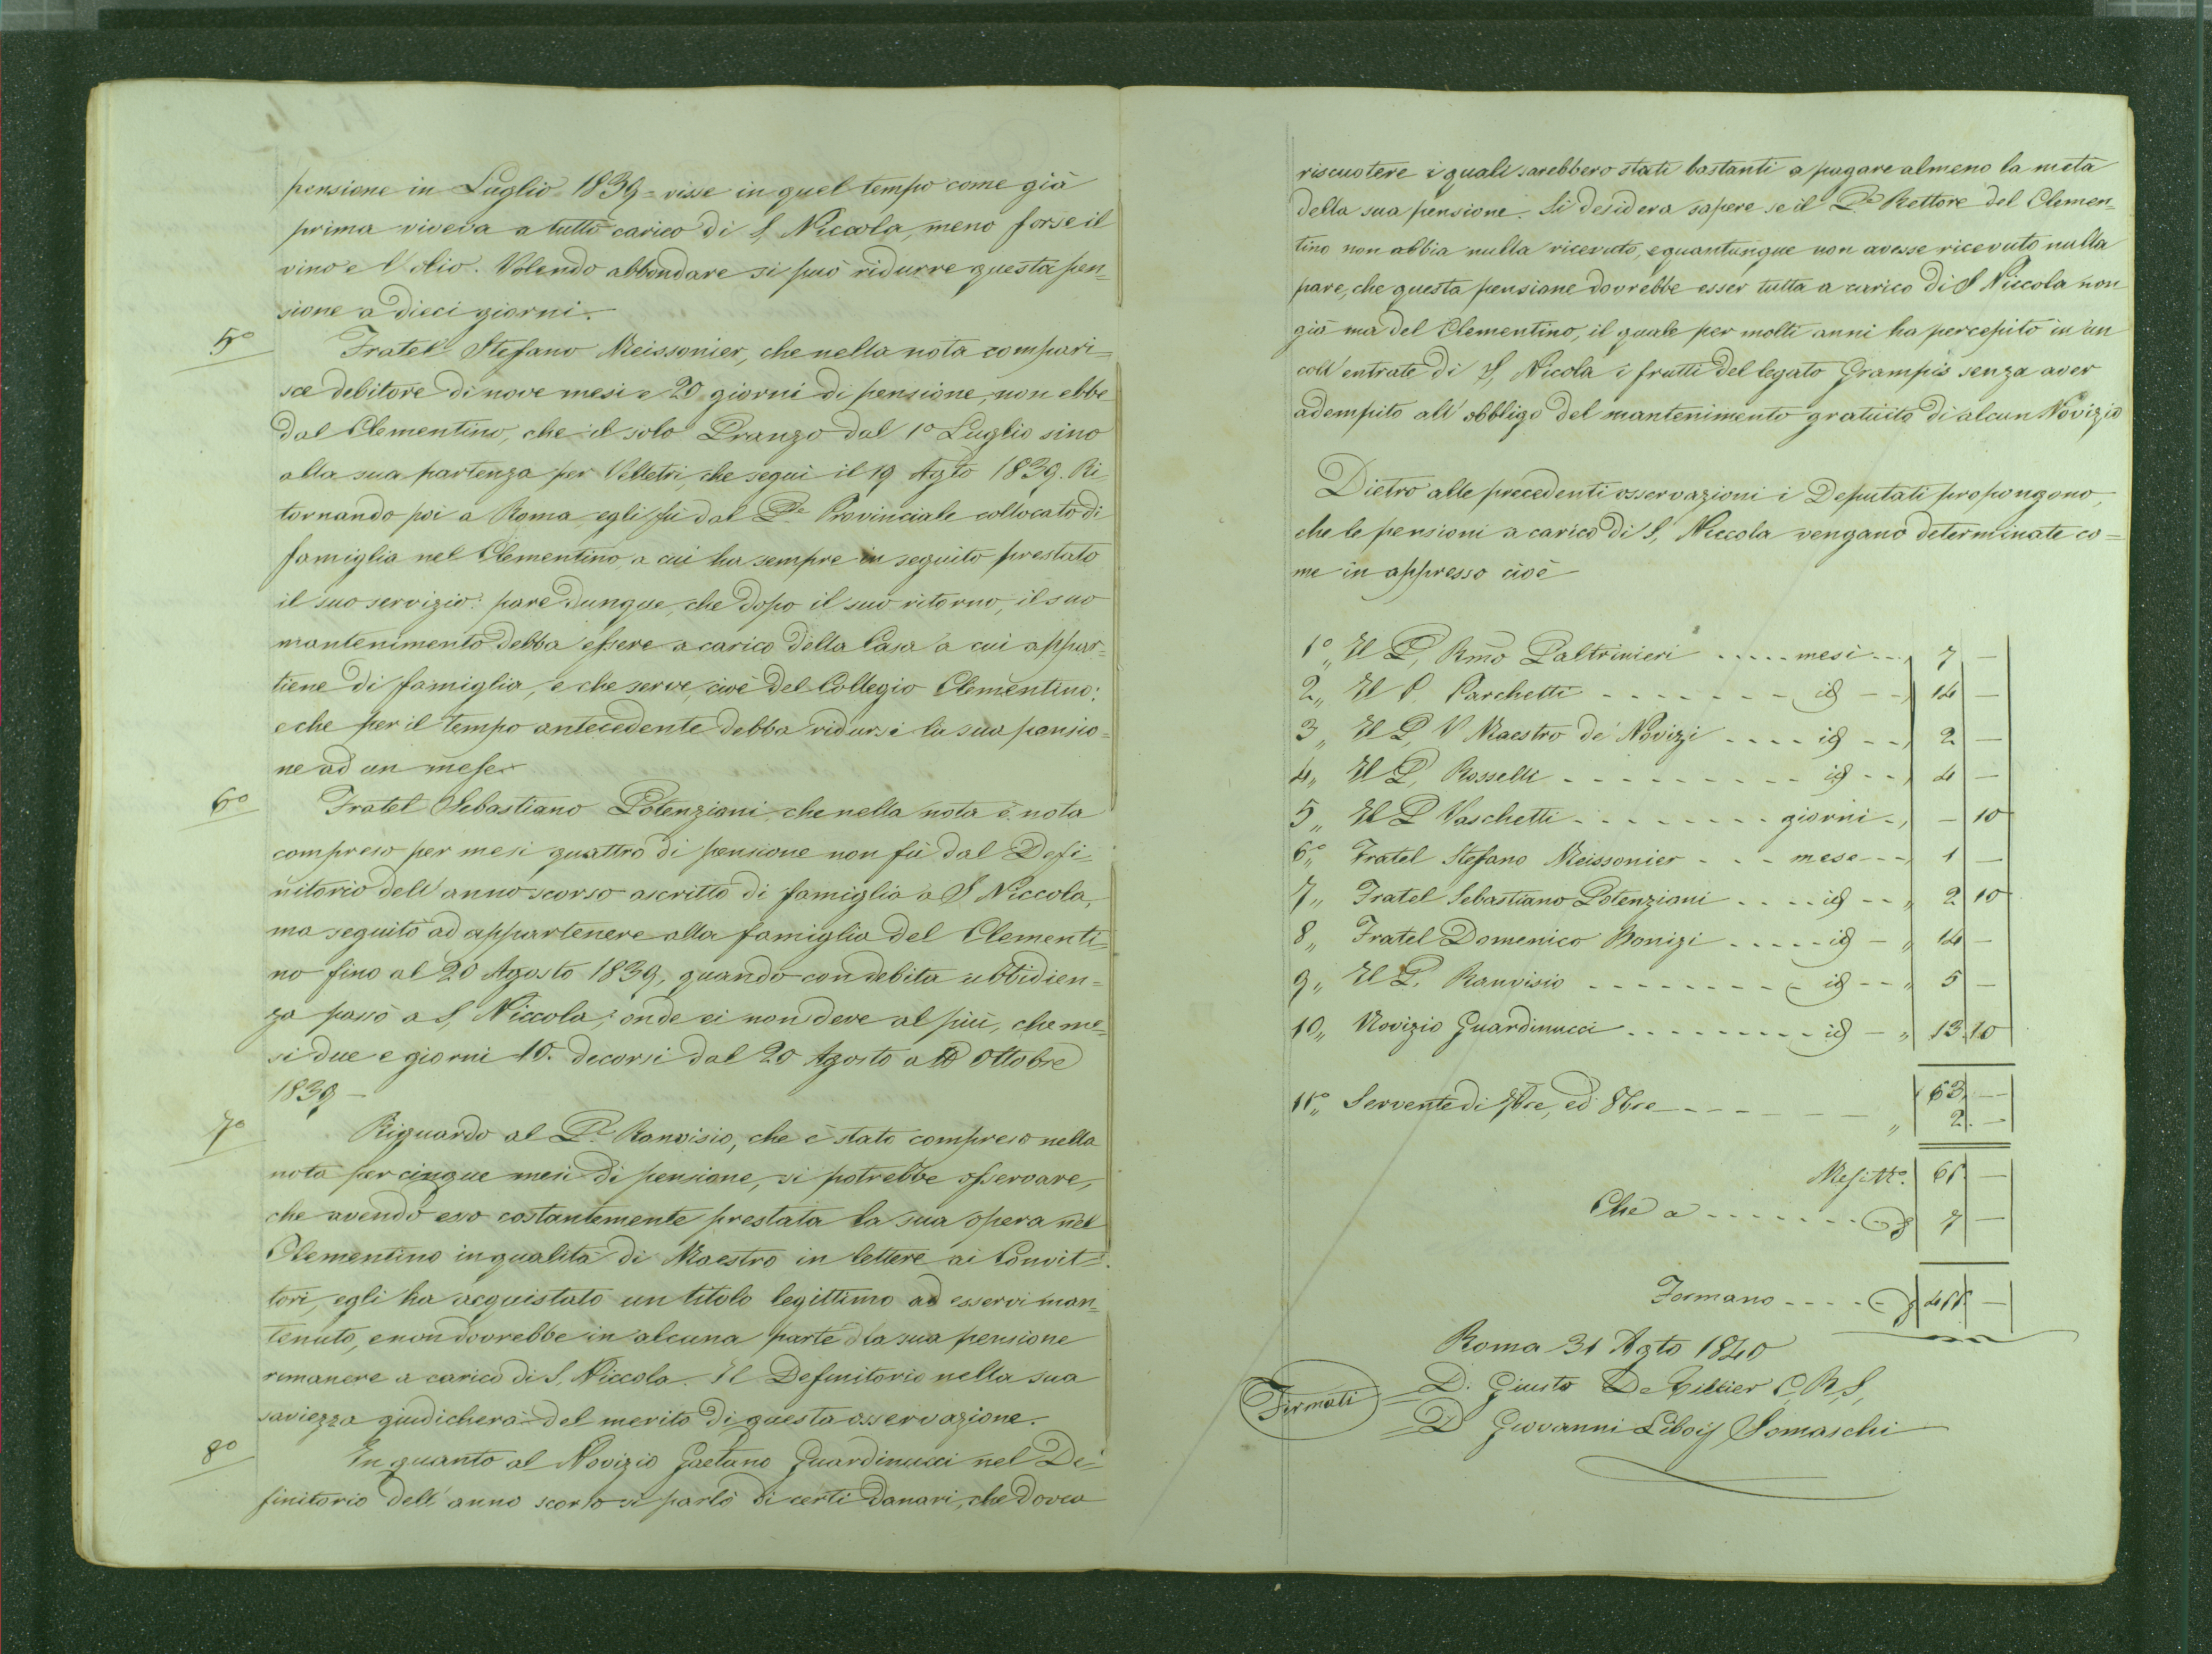 pensione in Luglio 1839 = visse in quel tempo come già
prima viveva a tutto carico di S. Niccola, meno forse il
vino e l'olio. Volendo abbondare si può ridurre questa pen=
sione a dieci giorni.
5º Fratel Stefano Meissonier, che nella nota compari=
sce debitore di nove mesi e 20 giorni di pensione, non ebbe
dal Clementino, che il solo Pranzo dal 1º Luglio sino
alla sua partenza per Velletri, che seguì il 19 Agto 1839. Ri=
tornando poi a Roma egli fù dal Pe Provinciale collocato di
famiglia nel Clementino a cui ha sempre in seguito prestato
il suo servizio: pare dunque, che dopo il suo ritorno, il suo
mantenimento debba essere a carico della Casa a cui appar=
tiene di famiglia, e che serve, cioè del Collegio Clementino:
e che per il tempo antecedente debba ridursi la sua pensio=
ne ad un mese.
6º Fratel Sebastiano Potenziani che nella nota è nota
compreso per mesi quattro di pensione non fù dal Defi=
nitorio dell'anno scorso ascritto di famiglia a S. Niccola,
ma seguitò ad appartenere alla famiglia del Clementi=
no fino al 20 Agosto 1839, quando con debita ubbidien=
za passò a S. Niccola; onde ei non deve al più, che me=
si due e giorni 10. decorsi dal 20 Agosto a Ottobre
1839 —
7º Riguardo al Pe Ranvisio, che è stato compreso nella
nota per cinque mesi di pensione, si potrebbe osservare,
che avendo esso costantemente prestata la sua opera nel
Clementino in qualità di Maestro in lettere ai Convit=
tori, egli ha acquistato un titolo legittimo ad esservi man=
tenuto, e non dovrebbe in alcuna parte la sua pensione
rimanere a carico di S. Niccola. Il Definitorio nella sua
saviezza giudicherà del merito di questa osservazione.
8º In quanto al Novizio Gaetano Guardinucci nel De=
finitorio dell'anno scorso si parlò di certi danari, che dovea
riscuotere i quali sarebbero stati bastanti a pagare almeno la metà
della sua pensione. Si desidera sapere se il Pe Rettore del Clemen=
tino non abbia nulla ricevuto, e quantunque non avesse ricevuto nulla
pare, che questa pensione dovrebbe esser tutta a carico di S Niccola non
già ma del Clementino, il quale per molti anni ha percepito in un
coll'entrate di S. Nicola i frutti del legato Grampis senza aver
adempito all'obbligo del mantenimento gratuito di alcun Novizio
Dietro alle precedenti osservazioni i Deputati propongono,
che le pensioni a carico di S. Niccola vengano determinate co=
me in appresso cioè
1º„ Il P. Rmo Paltrinieri ..... mesi .. 7 —
2„ Il P. Parchetti - - - - - - - id - - 14 —
3„ Il P. V Maestro de' Novizi .... id - - 2 —
4„ Il P. Rosselli - - - - - - - - id - - 4 —
5„ Il P Vaschetti - - - - - - - giorni - — 10
6º„ Fratel Stefano Meissonier - - - mese - - 1 —
7„ Fratel Sebastiano Potenziani .... id - - „ 2 10
8„ Fratel Domenico Bonizi ..... id - „ 14 —
9„ Il P. Ranvisio - - - - - - - - id - - „ 5 —
10„ Novizio Guardinucci ......... id - „ 13 10
63 —
11º„ Servente di 7bre, ed 8bre - - - - „ 2 —
Mesi Nº. 65 —
Che a ....... 7 —
Formano .... 455 —
Roma 31 Agto 1840
Firmati D. Giusto De C.R.S.
D Giovanni Somaschi